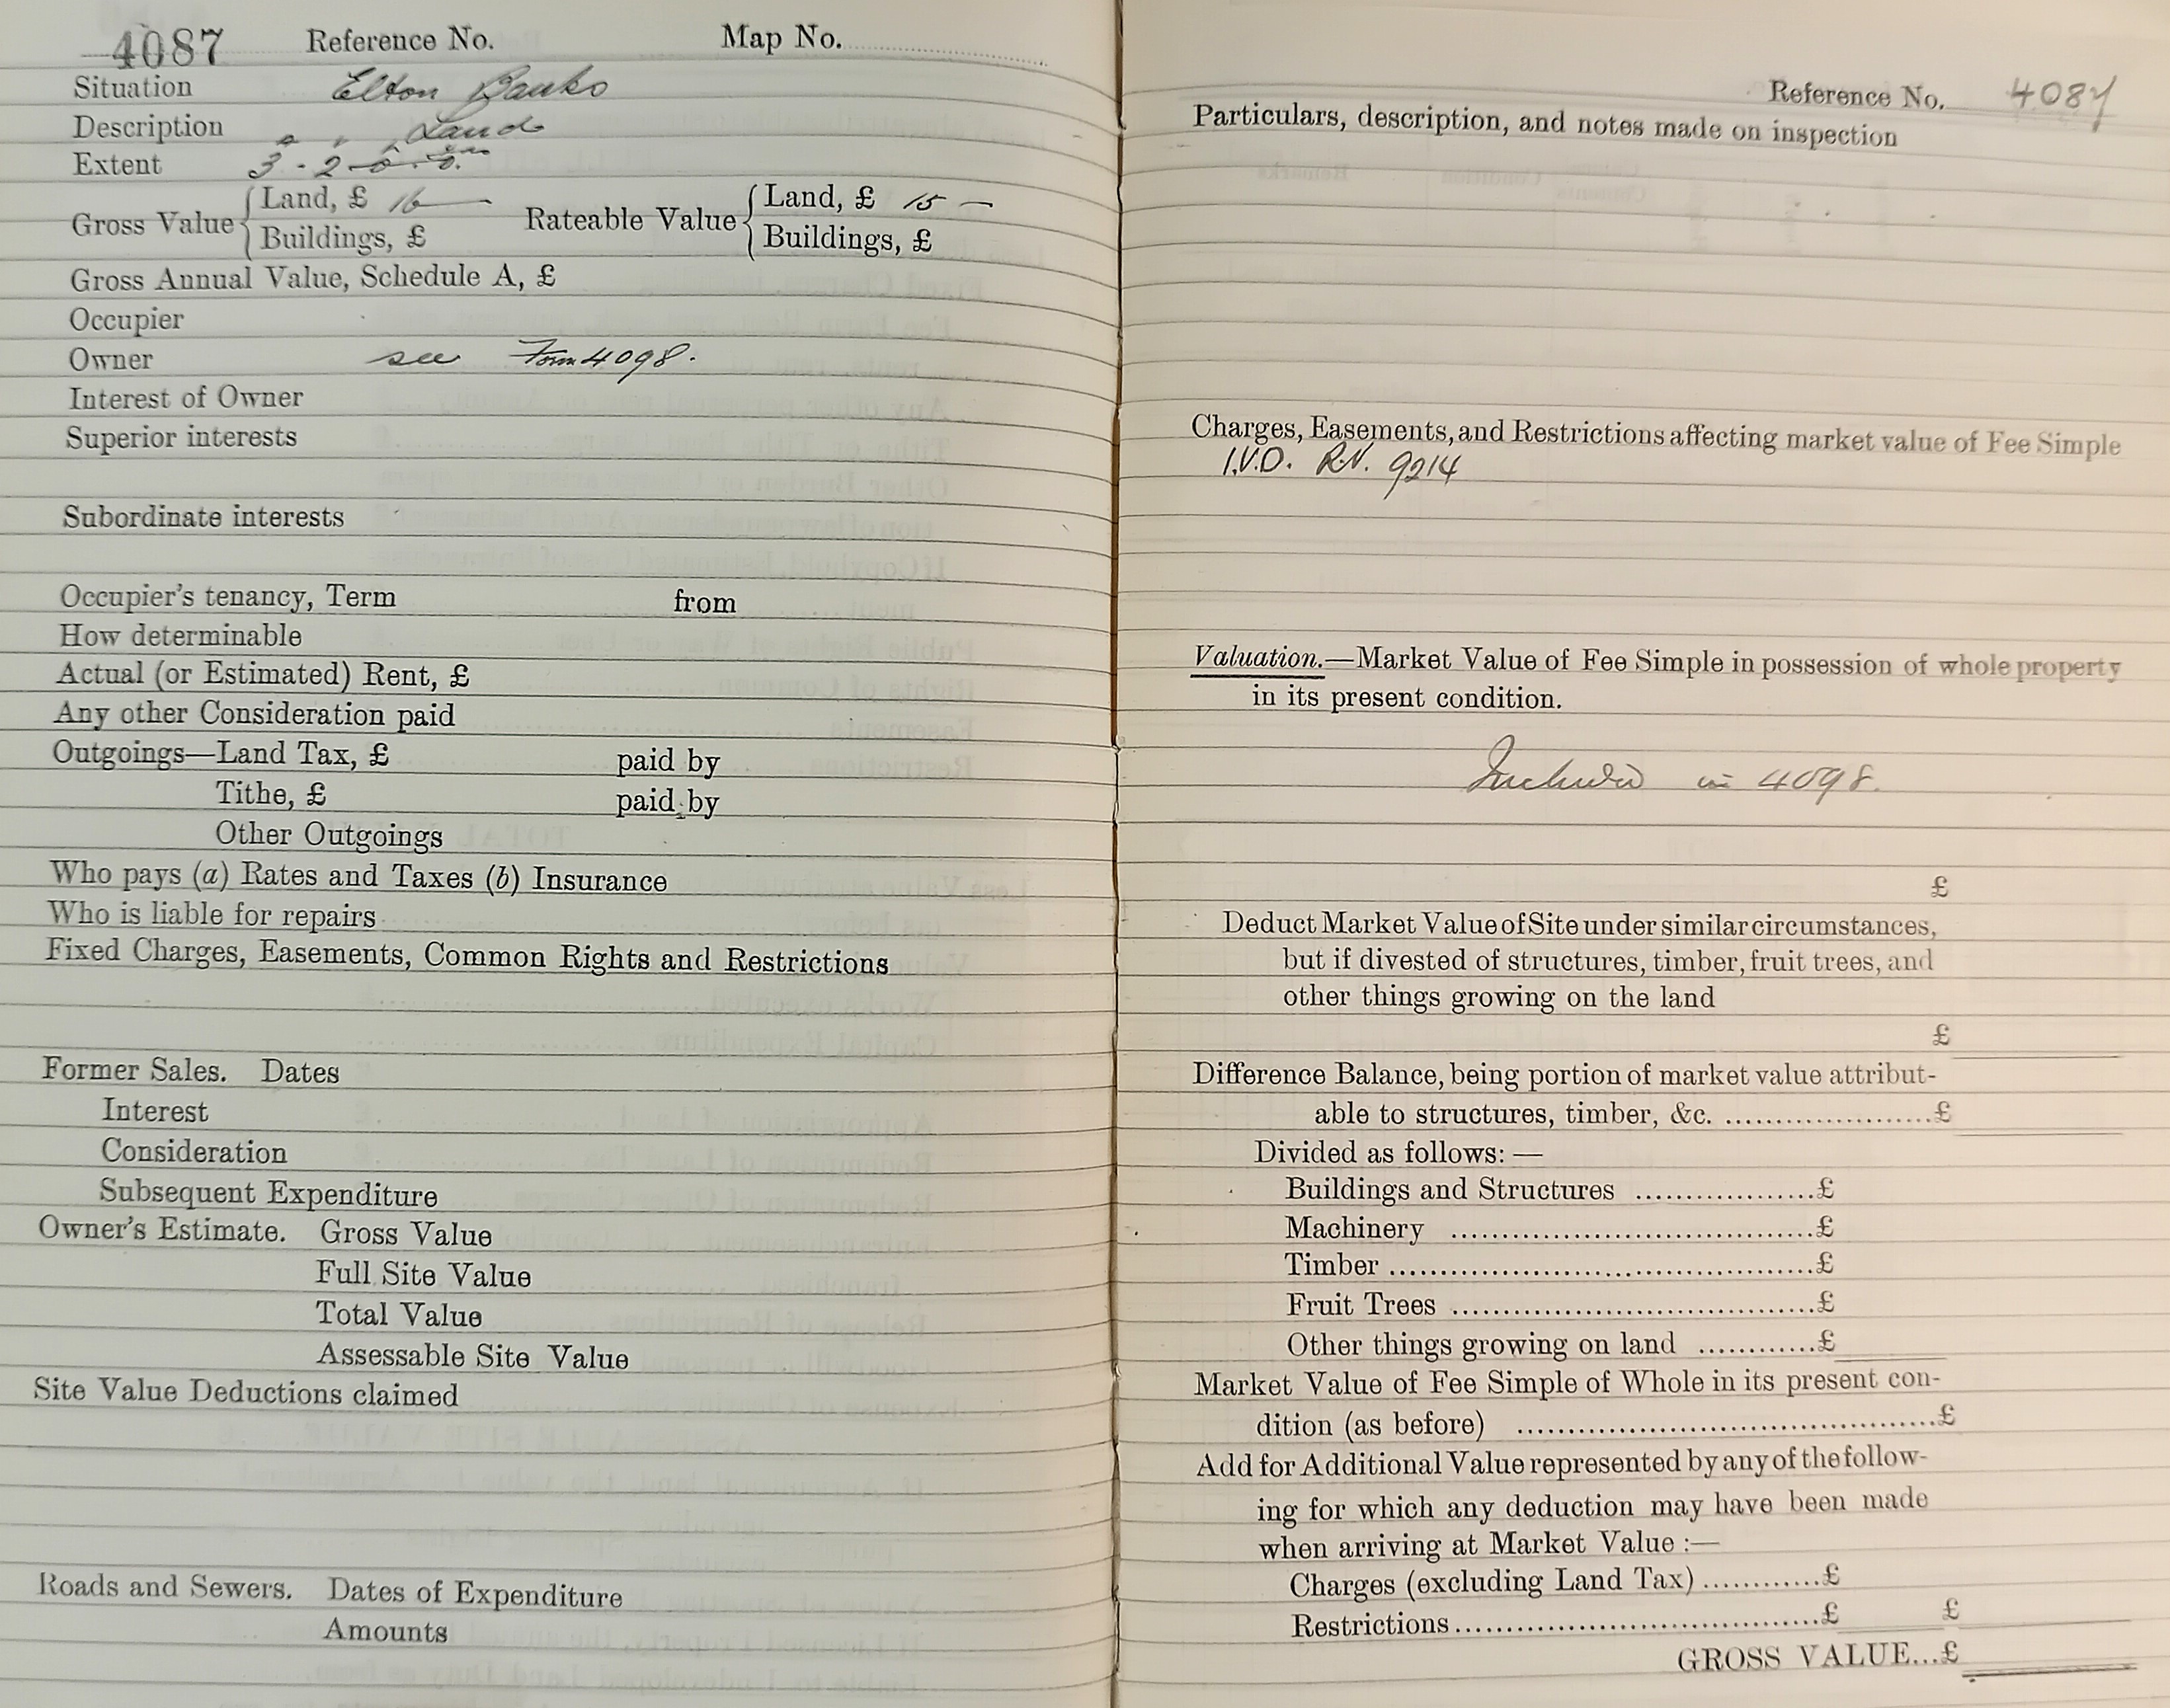 4087 Reference No. Map No.
Situation Elton Banks
Description Land
Extent 3 - 2
Gross Value { Land, £ 16 — Rateable Value { Land, £ 15 —
Buildings, £ Buildings, £
Gross Annual Value, Schedule A, £
Occupier
Owner see Form 4098.
Interest of Owner
Superior interests
Subordinate interests
Occupier's tenancy, Term from
How determinable
Actual (or Estimated) Rent, £
Any other Consideration paid
Outgoings—Land Tax, £ paid by
Tithe, £ paid by
Other Outgoings
Who pays (a) Rates and Taxes (b) Insurance
Who is liable for repairs
Fixed Charges, Easements, Common Rights and Restrictions
Former Sales. Dates
Interest
Consideration
Subsequent Expenditure
Owner's Estimate. Gross Value
Full Site Value
Total Value
Assessable Site Value
Site Value Deductions claimed
Roads and Sewers. Dates of Expenditure
Amounts
Reference No. 4087
Particulars, description, and notes made on inspection
Charges, Easements, and Restrictions affecting market value of Fee Simple
I.V.D. R.N. 9214
Valuation.—Market Value of Fee Simple in possession of whole property
in its present condition.
Included in 4098.
£
Deduct Market Value of Site under similar circumstances,
but if divested of structures, timber, fruit trees, and
other things growing on the land
£
Difference Balance, being portion of market value attribut-
able to structures, timber, &c. ....................£
Divided as follows: —
Buildings and Structures ..................£
Machinery ....................................£
Timber ..........................................£
Fruit Trees ....................................£
Other things growing on land ............£
Market Value of Fee Simple of Whole in its present con-
dition (as before) .........................................£
Add for Additional Value represented by any of the follow-
ing for which any deduction may have been made
when arriving at Market Value :—
Charges (excluding Land Tax) ............£
Restrictions....................................£ £
GROSS VALUE...£